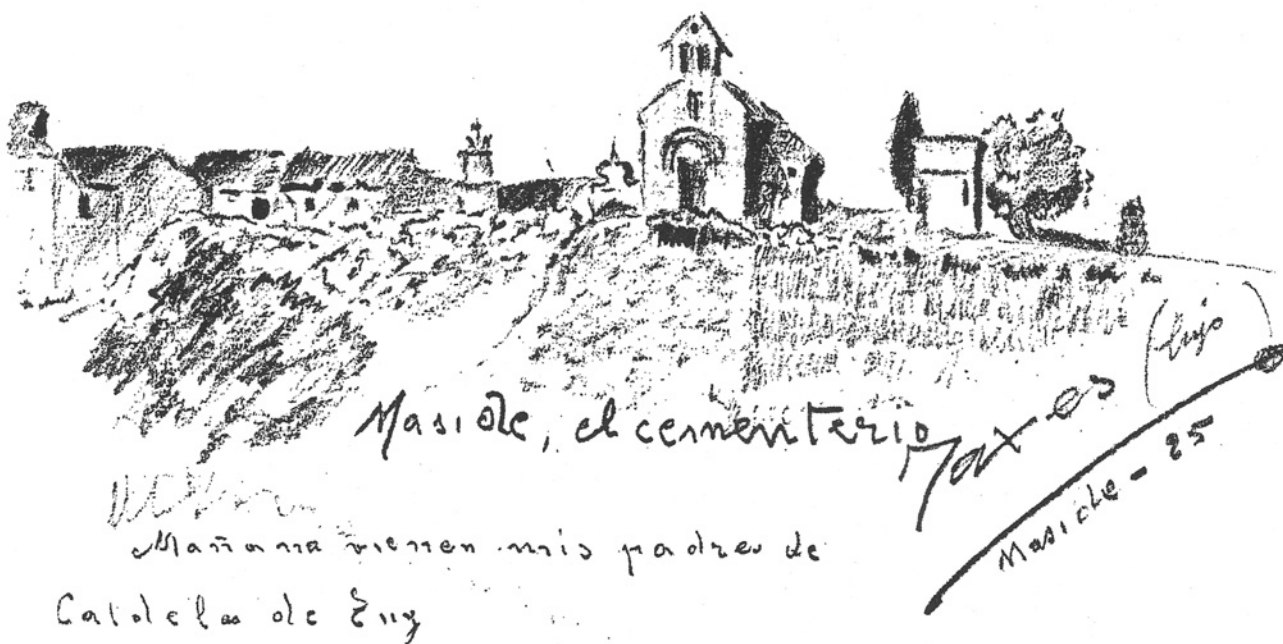 Maside, el cementerio
Max-es (hijo)
Maside - 25
Mañana vienen mis padres de
Caldelas de Tuy